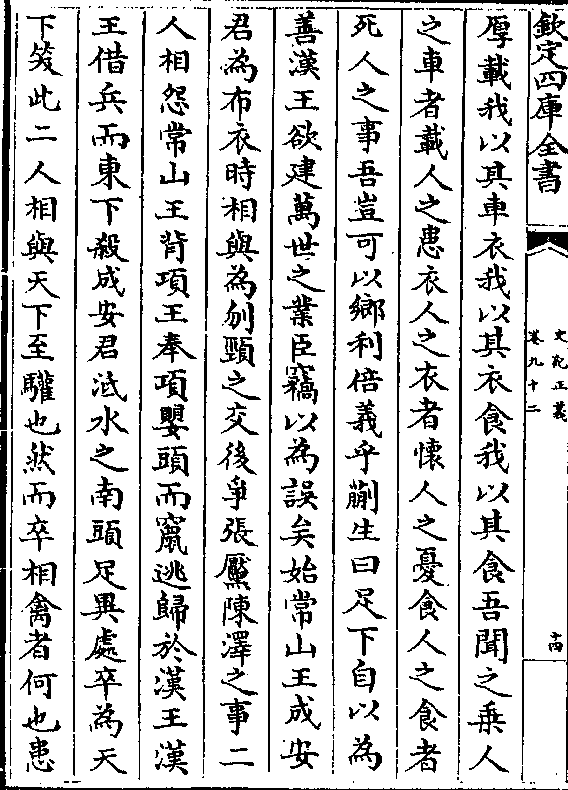 欽定四庫全書
史記正義
卷九十二
十四
厚載我以其車衣我以其衣食我以其食吾聞之乗人
之車者載人之患衣人之衣者懐人之憂食人之食者
死人之事吾豈可以鄉利倍義乎蒯生曰足下自以為
善漢王欲建萬世之業臣竊以為誤矣始常山王成安
君為布衣時相與為刎頸之交後爭張黶陳澤之事二
人相怨常山王背項王奉項嬰頭而竄逃歸於漢王漢
王借兵而東下殺成安君泜水之南頭足異處卒為天
下笑此二人相與天下至驩也然而卒相禽者何也患